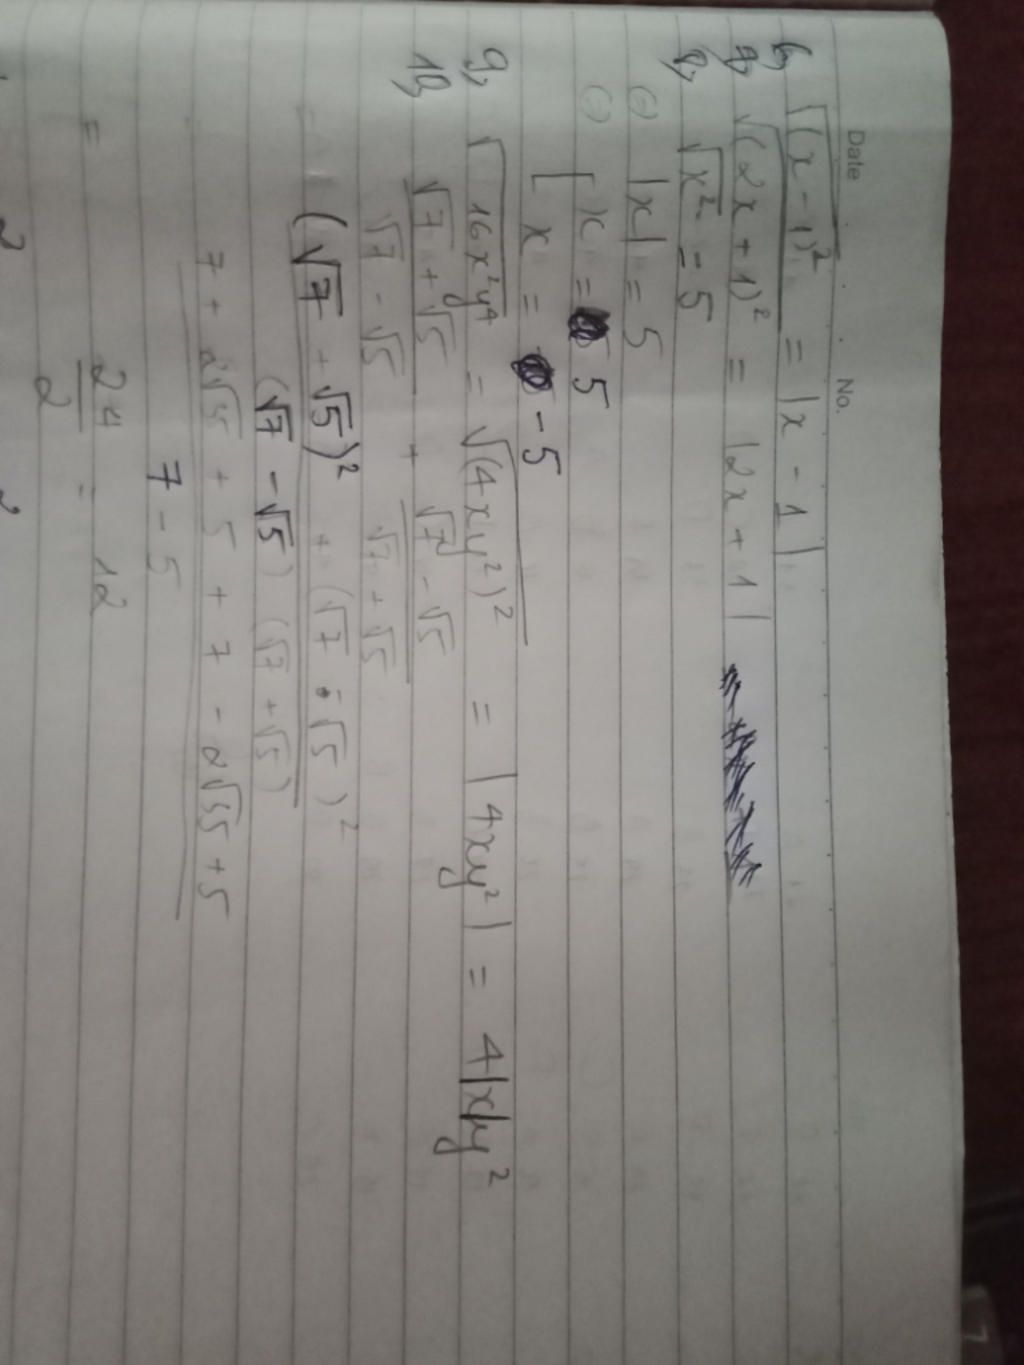 Date No.
6, √(x-1)² = |x-1|
7, √(2x+1)² = |2x+1|
8, √x² = 5
(=) |x| = 5
(=) [ x = 5
x = -5
9, √16x²y⁴ = √(4xy²)² = |4xy²| = 4|x|y²
10, √7 + √5 / √7 - √5 + √7 - √5 / √7 + √5
= (√7 + √5)² + (√7 - √5)²
(√7 - √5) (√7 + √5)
7 + 2√35 + 5 + 7 - 2√35 + 5
7 - 5
= 24 / 2 = 12